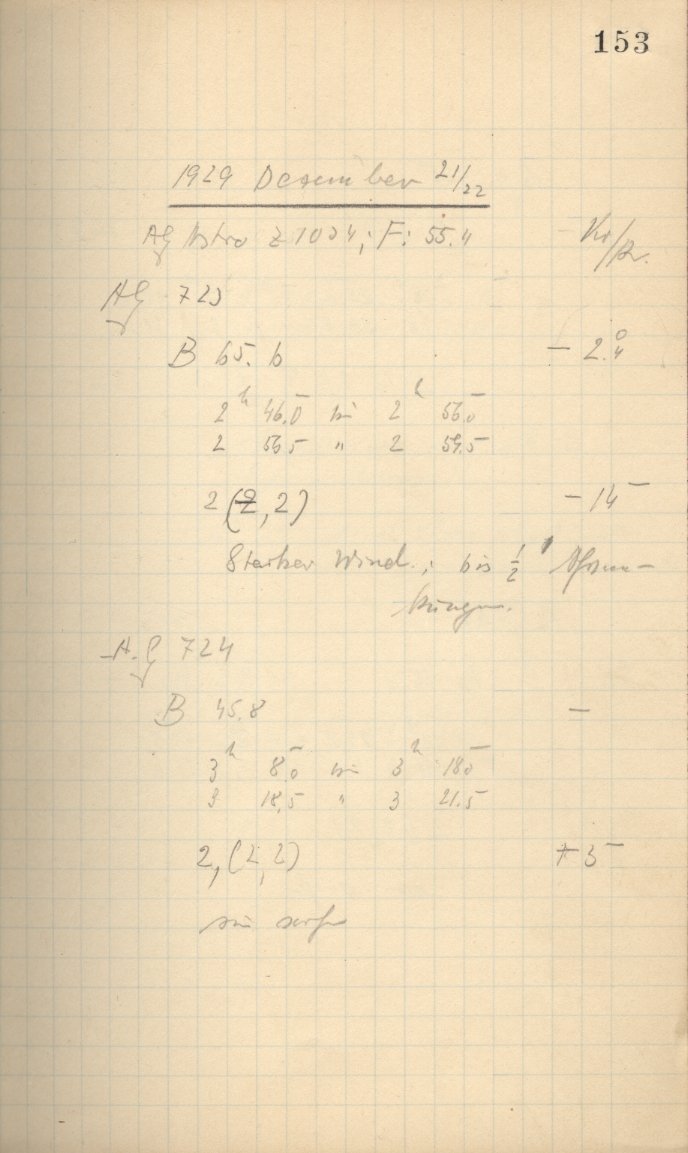 153
1929 Dezember 21/22
AG Astro Z 1034; F: 55.4 Ko/Pr.
AG 723
B 65.6 - 2°.4
2h 46.0 bis 2h 56.0
2 56.5 " 2 59.5
2 (2, 2) - 14
Starker Wind; bis 1/2'
AG 724
B 45.8 -
3h 8.0 bis 3h 18.0
3 18.5 " 3 21.5
2, (2, 2) + 3
wie vorher